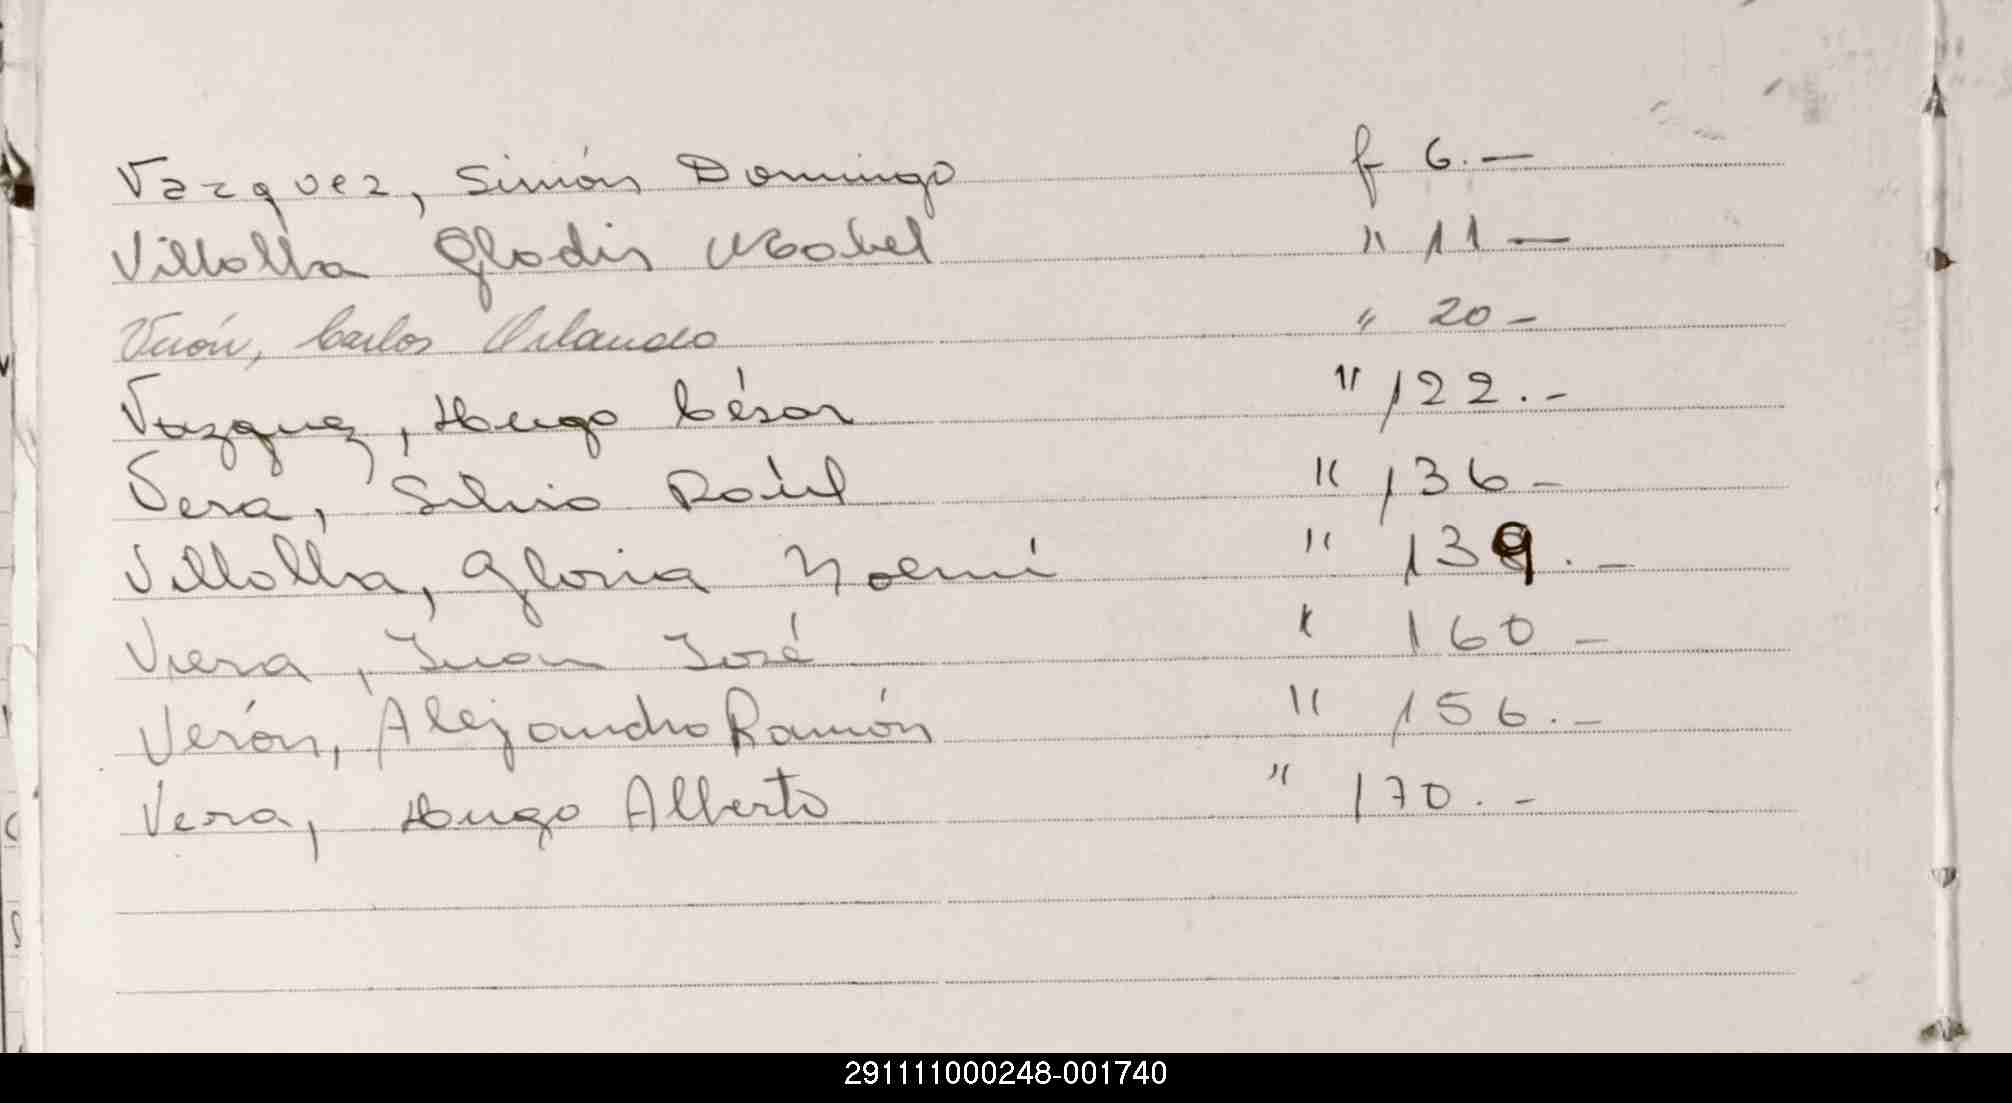 Vazquez, Simón Domingo f 6.—
Villalba Gladis Mabel " 11 —
Verón, Carlos Orlando " 20 -
Vazquez, Hugo César " 122.-
Vera, Silvio Raúl " 136 -
Villalba, Gloria Noemi " 139.-
Viera, Juan José " 160 -
Verón, Alejandro Ramón " 156.-
Vera, Hugo Alberto " 170.-
291111000248-001740